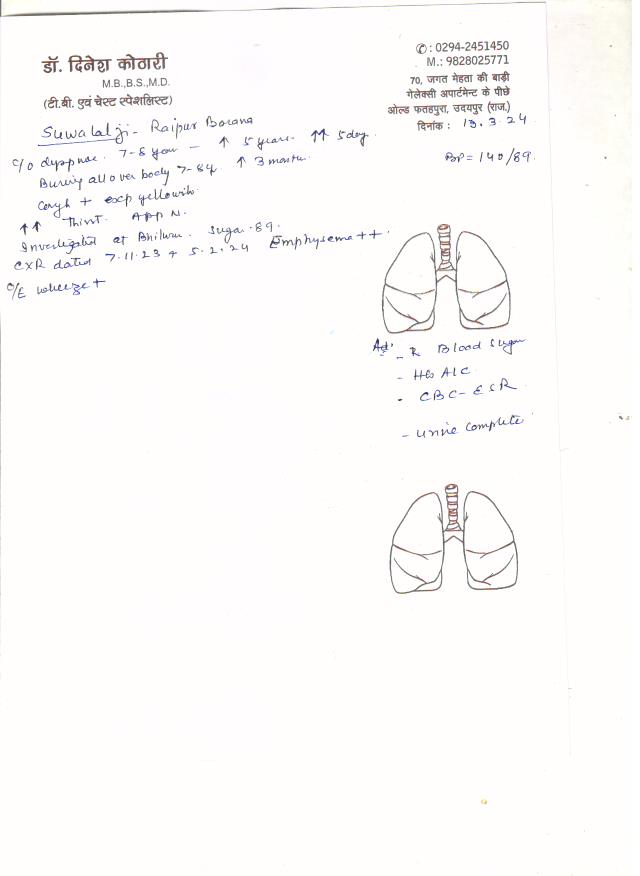 डॉ. दिनेश कोठारी
M.B.,B.S.,M.D.
(टी.बी. एवं चेस्ट स्पेशलिस्ट)
✆ : 0294-2451450
M.: 9828025771
70, जगत मेहता की बाड़ी
गेलेक्सी अपार्टमेन्ट के पीछे
ओल्ड फतहपुरा, उदयपुर (राज.)
दिनांक : 13.3.24
Suwalal ji - Raipur Borana
BP = 140/89
C/O dyspnoea 7-8 year - ↑ 5 years ↑↑ 5 day
Burning all over body 7-8 y. ↑ 3 months
Cough + exp yellowish
↑↑ Thirst. App N.
Investigated at Bhilwara. Sugar-89.
CXR dated 7.11.23 + 5.2.24 Emphysema ++
O/E wheeze +
Ad'
- R Blood Sugar
- Hb A1C
- CBC - ESR
- Urine Complete